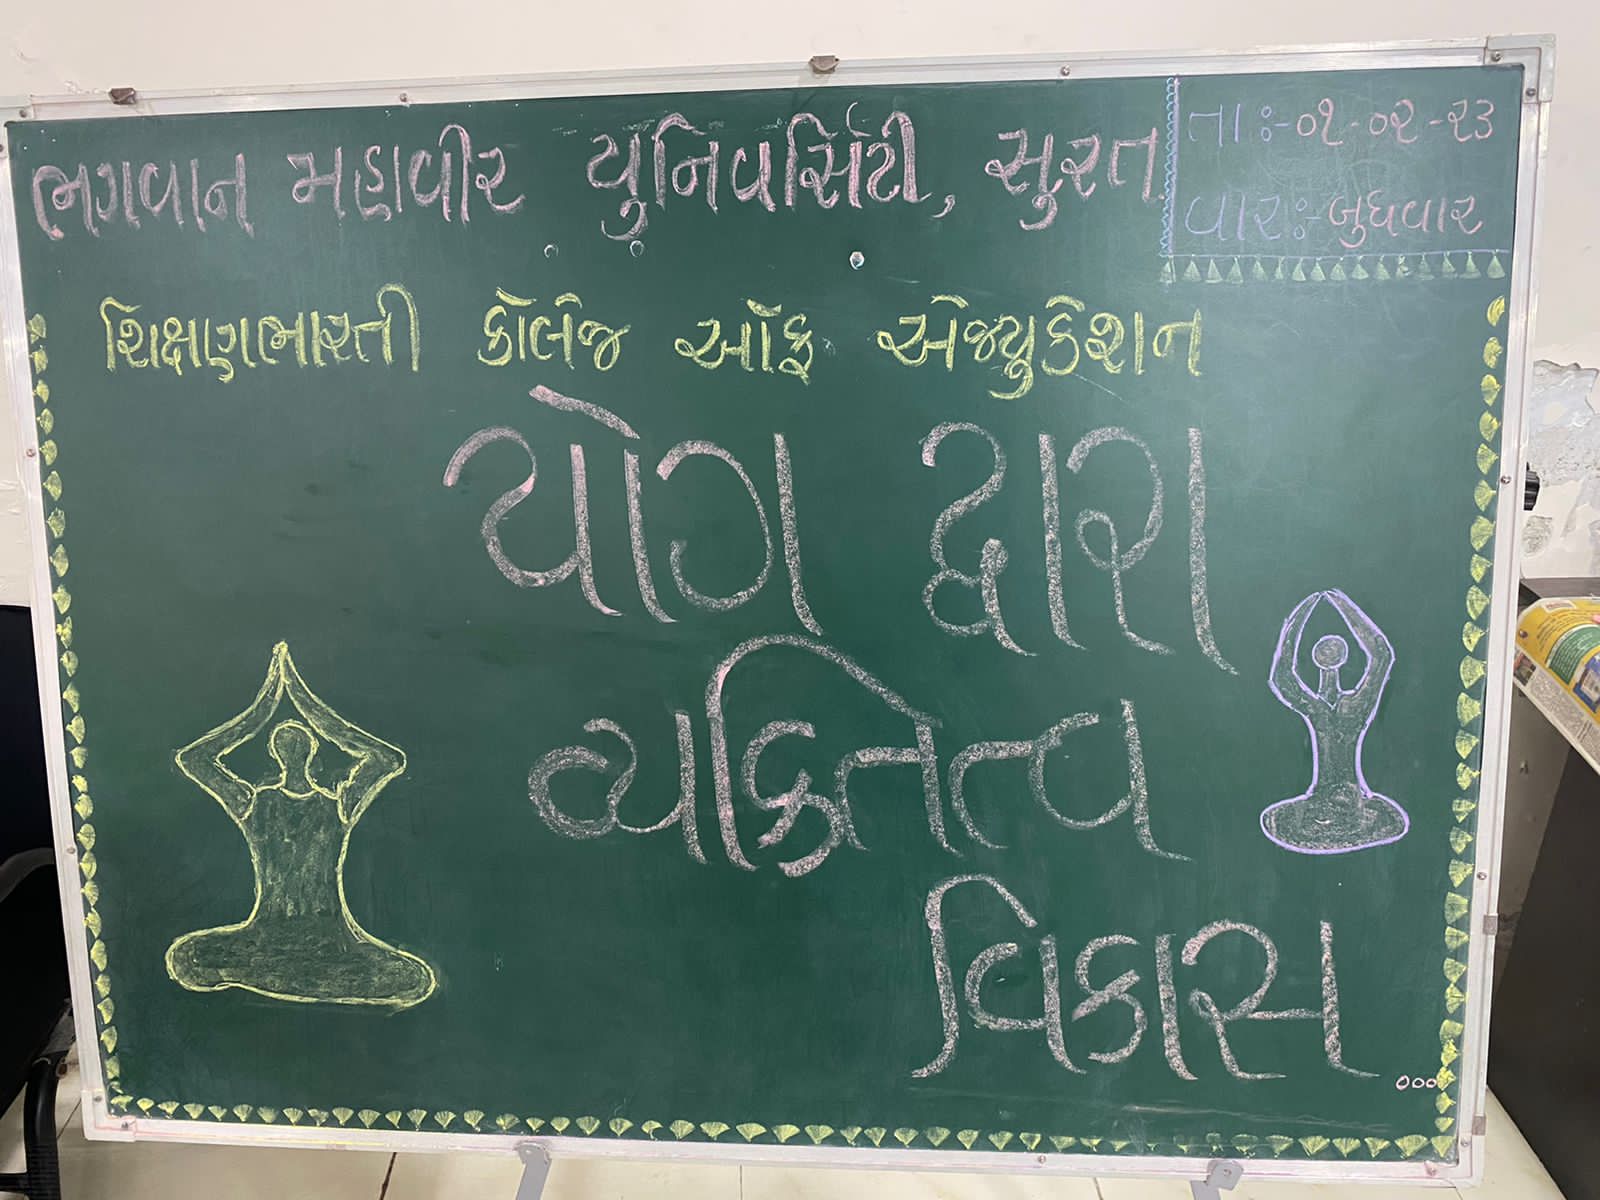 ભગવાન મહાવીર યુનિવર્સિટી, સુરત.
તા:-૦૧-૦૨-૨૩
વાર:-બુધવાર
શિક્ષણભારતી કૉલેજ ઑફ એજ્યુકેશન
યોગ દ્વારા
વ્યક્તિત્વ
વિકાસ